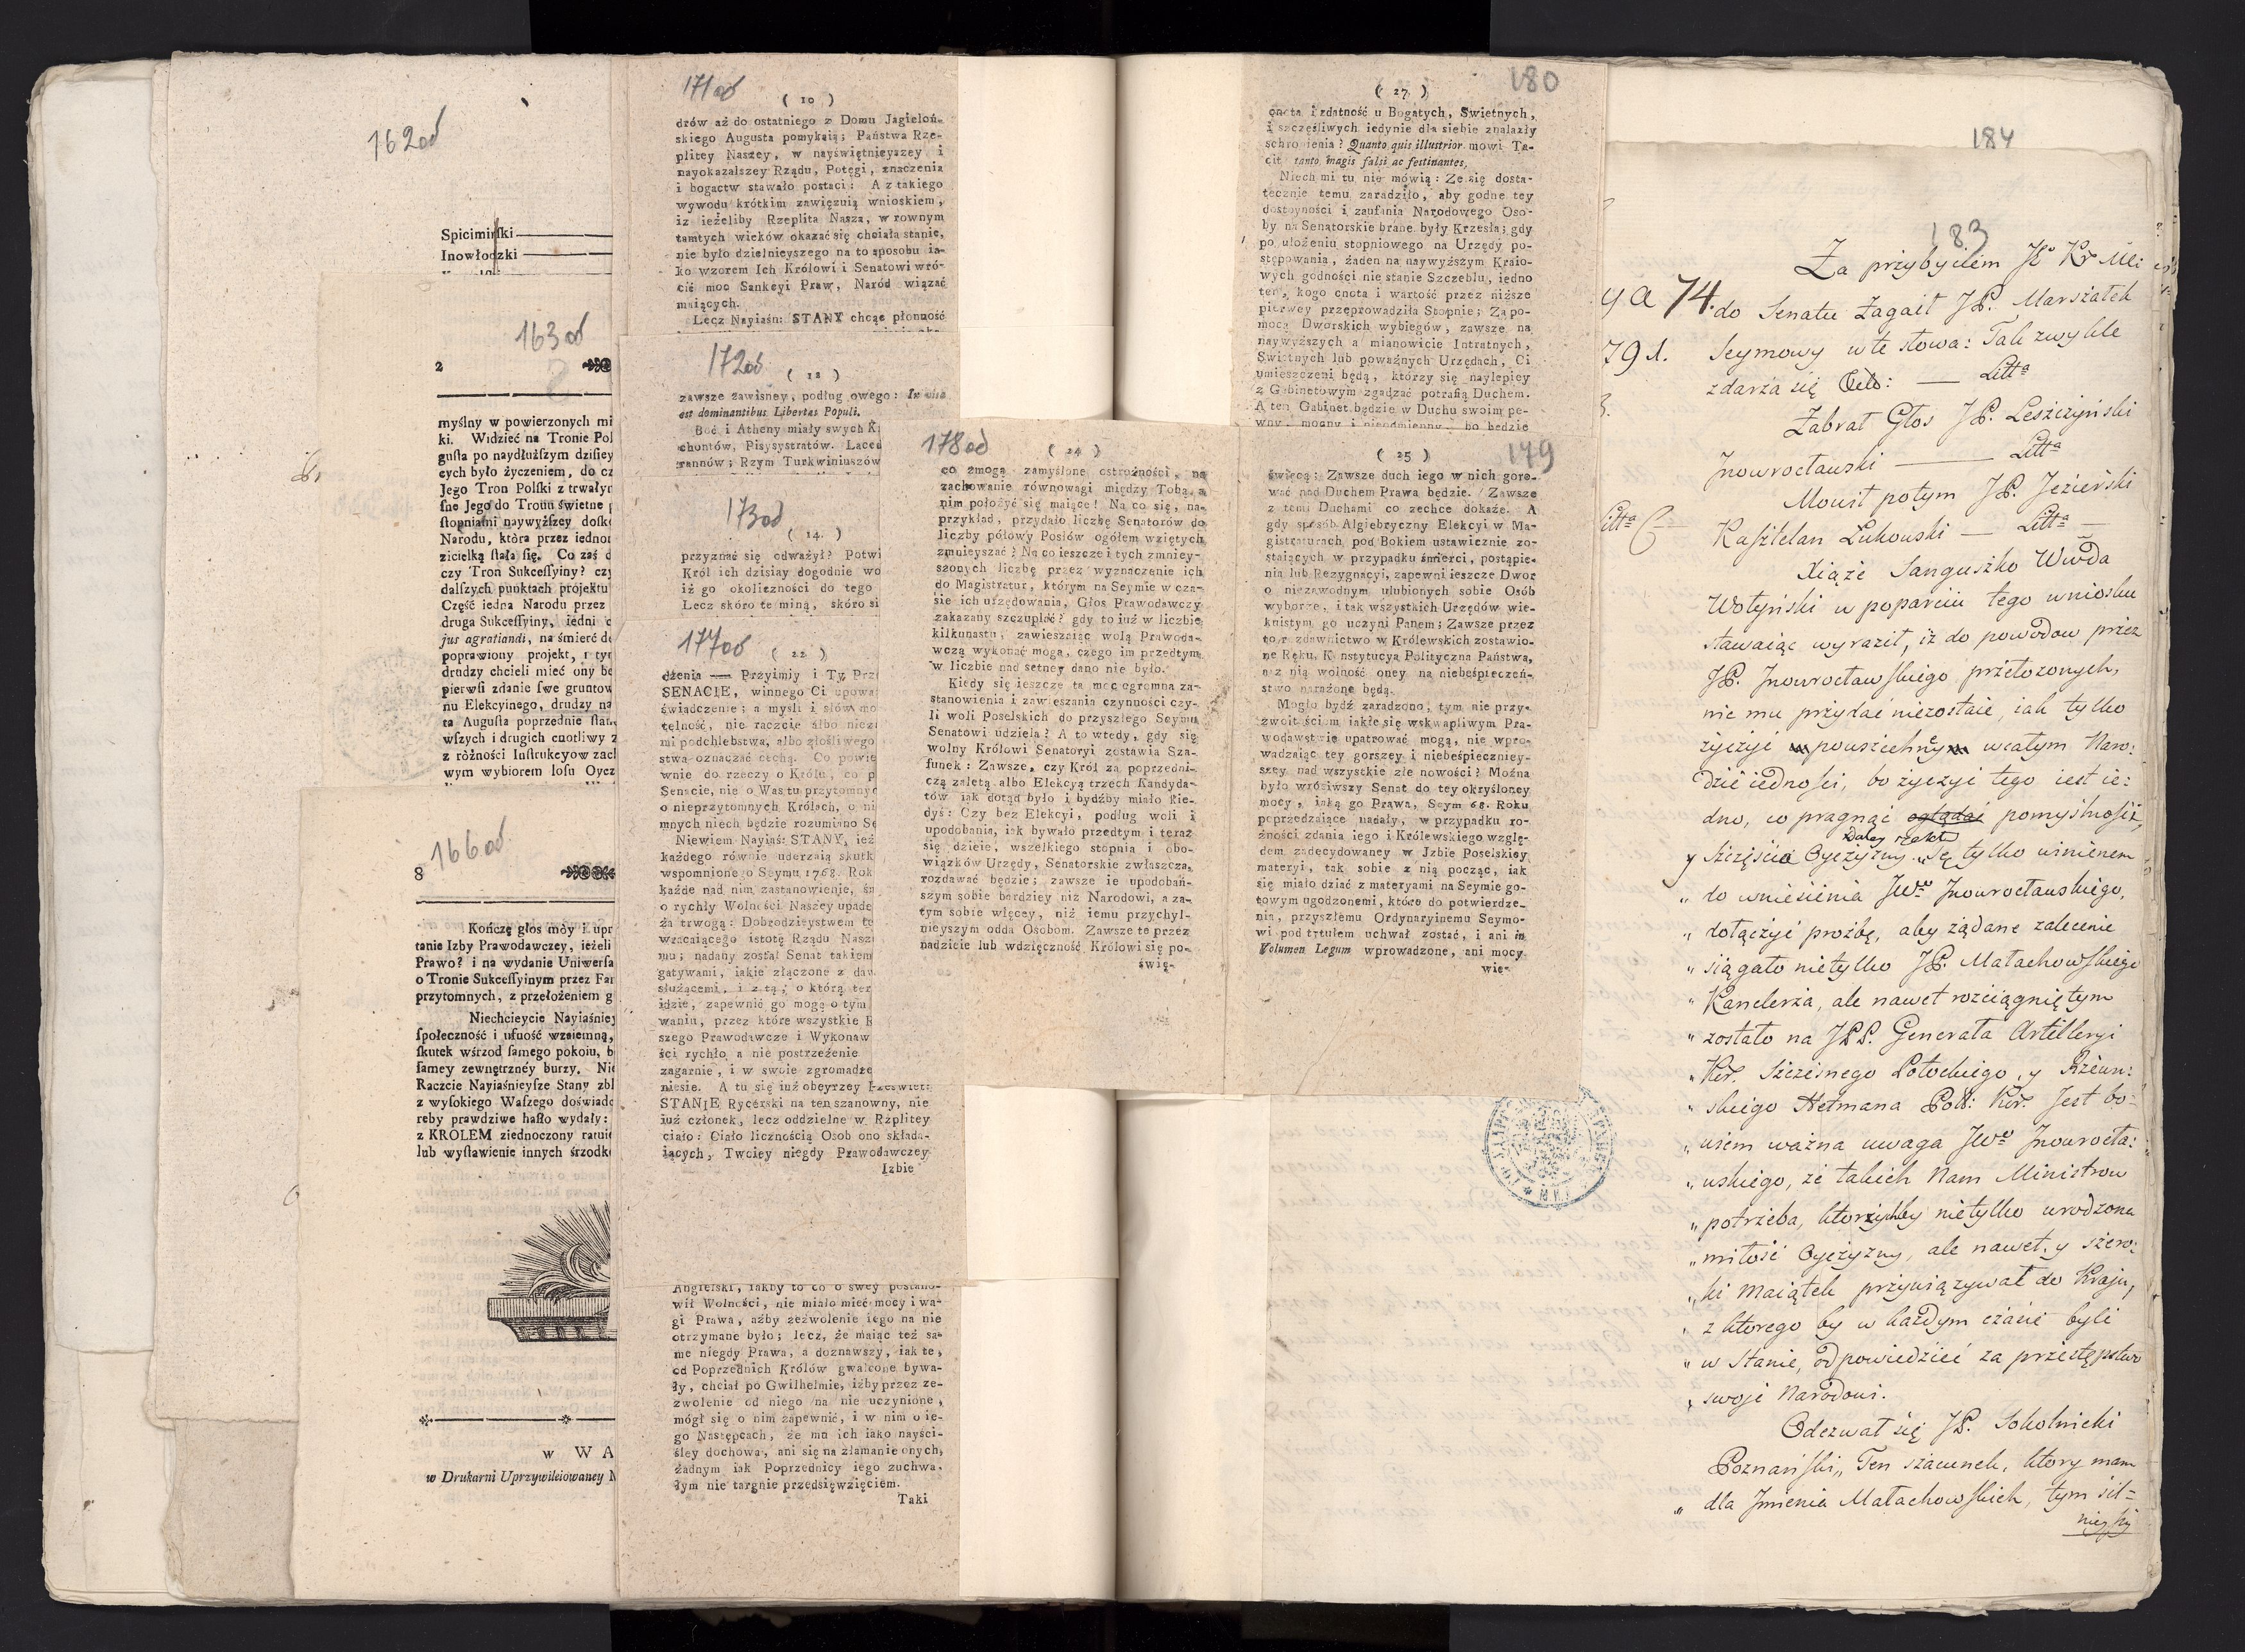 162od
Spicimirſki
Inowłodzki
163od
2
myślny w powierzonych mi
ki. Widzieć na Tronie Pol
guſta po naydłuższym dzisiey
cych było życzeniem, do cz
Jego Tron Polſki z trwałyc
ſne Jego do Tronu świetne
ſtopniami naywyżſzey doſko
Narodu, która przez iednor
zicielką ſtała ſię. Co zaś d
czy Tron Sukceſſyiny? czy
dalſzych punktach projektu
Część iedna Narodu przez
druga Sukceſſyiny, iedni
jus agratiandi, na śmierć de
poprawiony projekt, i tyr
drudzy chcieli mieć ony be
pierwſi zdanie ſwe gruntow
nu Elekcyinego, drudzy na
ta Auguſta poprzednie ſtan
wſzych i drugich cnotliwy z
z różności Inſtrukcyow zach
wym wybiorem loſu Oycz
166od
8
Kończę głos móy i upr
tanie Izby Prawodawczey, ieżeli
Prawo? i na wydanie Uniwerſa
o Tronie Sukceſſyinym przez Far
przytomnych, z przełożeniem g
Niechcieycie Nayiaśniey
ſpołeczność i ufność wzaiemną,
ſkutek wśrzod ſamego pokoiu, b
ſamey zewnętrznéy burzy. Nie
Raczcie Nayiaśnieyſze Stany zbl
z wyſokiego Waſzego doświadc
reby prawdziwe haſło wydały:
z KROLEM ziednoczony ratuie
lub wyſtawienie innych śrzodkó
w WA
w Drukarni Uprzywileiowaney
171od
( 10 )
drów aż do ostatniego z Domu Jagieloń-
skiego Augusta pomykaią; Państwa Rze-
plitey Naszey, w nayświętnieyszey i
nayokazalszey Rządu, Potęgi, znaczenia
i bogactw stawało postaci: A z takiego
wywodu krótkim zawięzuią wnioskiem,
iż ieżeliby Rzeplita Nasza, w rownym
tamtych wieków okazać się chciała stanie,
nie było dzielnieyszego na to sposobu ia-
ko wzorem Ich Królowi i Senatowi wró-
cić moc Sankcyi Praw, Naród wiązać
maiących.
Lecz Nayiaśn: STANY chcąc płonność
172od
( 12 )
zawsze zawisney, podług owego: In vita
est dominantibus Libertas Populi.
Boć i Atheny miały swych
chontów, Pisysystratów. Laced
rannów; Rzym Turkwiniuszów
173od
( 14. )
przyznać się odważył? Potwi
Król ich dzisiay dogodnie wo
iż go okoliczności do tego
Lecz skóro te miną, skóro si
177od
( 22 )
dżenia — Przyimiy i Ty Prz
SENACIE, winnego Ci upowa
świadczenie; a myśli i słów mo
telność, nie raczcie albo niez
mi podchlebstwa, albo złośliwego
stwa oznaczać cechą. Co powie
wnie do rzeczy o Królu, co p
Senacie, nie o Was tu przytomnyc
o nieprzytomnych Królach, o ni
mnych niech będzie rozumiano Se
Niewiem Nayiaś: STANY, ież
każdego równie uderzaią skutk
wspomnionego Seymu 1768. Rok
każde nad nim zastanowienie, śm
o rychły Wolności Naszey upade
ża trwogą: Dobrodzieystwem te
wracaiącego istotę Rządu Nasz
mu; nadany został Senat takiem
gatywami, iakie złączone z daw
służącemi, i z tą, o którą ter
idzie, zapewnić go mogą o tym
waniu, przez które wszystkie
szego Prawodawcze i Wykonaw
ści rychło a nie postrzeżenie
zagarnie, i w swoie zgromadze
niesie. A tu się iuż obeyrzey Prześwietn:
STANIE Rycérski na ten szanowny, nie
iuż członek, lecz oddzielne w Rzplitey
ciało: Ciało licznością Osob ono składa-
iących, Twoiey niegdy Prawodawczey
Izbie
Angielski, iakby to co o swey postano-
wił Wolności, nie miało mieć mocy i wa-
gi Prawa, ażby zezwolenie iego na nie
otrzymane było; lecz, że maiąc też sa-
me niegdy Prawa, a doznawszy, iak te,
od Poprzednich Królów gwałcone bywa-
ły, chciał po Gwilhelmie, iżby przez ze-
zwolenie od niego na nie uczynione,
mógł się o nim zapewnić, i w nim o ie-
go Następcach, że mu ich iako nayści-
śley dochowa, ani się na złamanie onych,
żadnym iak Poprzednicy iego zuchwa-
łym nie targnie przedsięwzięciem.
Taki
178od
( 24 )
co zmogą zamyślone ostrożności, na
zachowanie równowagi między Tobą, a
nim położyć się maiące! Na co się, na-
przykład, przydało liczbę Senatorów do
liczby połowy Posłów ogółem wziętych
zmnieyszać? Na co ieszcze i tych zmniey-
szonych liczbę przez wyznaczenie ich
do Magistratur, którym na Seymie w cza-
sie ich urzędowania, Głos Prawodawczy
zakazany szczuplić? gdy to iuż w liczbie
kilkunastu, zawieszaiąc wolą Prawoda-
wczą wykonać mogą, czego im przedtym
w liczbie nad setney dano nie było.
Kiedy się ieszcze ta moc ogromna za-
stanowienia i zawieszania czynności czy-
li woli Poselskich do przyszłego Seymu
Senatowi udziela? A to wtedy, gdy się
wolny Królowi Senatoryi zostawia Sza-
funek: Zawsze, czy Król za poprzedni-
czą zaletą albo Elekcyą trzech Kandyda-
tów iak dotąd było i bydźby miało kie-
dyś: Czy bez Elekcyi, podług woli i
upodobania, iak bywało przedtym i teraz
się dzieie, wszelkiego stopnia i obo-
wiązków Urzędy, Senatorskie zwłaszcza,
rozdawać będzie; zawsze ie upodobań-
szym sobie bardziey niż Narodowi, a za-
tym sobie więcey, niż iemu przychyl-
nieyszym odda Osobom. Zawsze te przez
nadzieie lub wdzięczność Królowi się po-
świę-
180
( 27 )
cnota i zdatność u Bogatych, Swietnych,
i szczęśliwych iedynie dla siebie znalazły
schronienia? Quanto quis illustrior mowi Ta-
cit tanto magis falsi ac festinantes.
Niech mi tu nie mówią: Ze się dosta-
tecznie temu zaradziło, aby godne tey
dostoyności i zaufania Narodowego Oso-
by na Senatorskie brane były Krzesła; gdy
po ułożeniu stopniowego na Urzędy po-
stępowania, żaden na naywyższym Kraio-
wych godności nie stanie Szczeblu, iedno
ten, kogo cnota i wartość przez niższe
pierwey przeprowadziła Stopnie; Za po-
mocą Dworskich wybiegów, zawsze na
naywyższych a mianowicie Intratnych,
Swietnych lub poważnych Urzędach, Ci
umieszczeni będą, którzy się naylepiey
z Gabinetowym zgadzać potrafią Duchem.
A ten Gabinet będzie w Duchu swoim pe-
wny, mocny i nieodmienny, bo będzie
179
( 25 )
święcą; Zawsze duch iego w nich goro-
wać nad Duchem Prawa będzie. Zawsze
z temi Duchami co zechce dokaże. A
gdy sposób Algiebryczny Elekcyi w Ma-
gistraturach, pod Bokiem ustawicznie zo-
staiących w przypadku śmierci, postąpie-
nia lub Rezygnacyi, zapewni ieszcze Dwor
o niezawodnym ulubionych sobie Osób
wyborze, i tak wszystkich Urzędów wie-
kuistym go uczyni Panem; Zawsze przez
to rozdawnictwo w Królewskich zostawio-
ne Ręku, Konstytucya Polityczna Państwa,
a z nią wolność oney na niebeśpieczeń-
stwo narażone będą.
Mogło bydź zaradzono; tym nie przy-
zwoitościom iakie się wskwapliwym Pra-
wodawstwie upatrować mogą, nie wpro-
wadzaiąc tey gorszey i niebeśpieczniey-
szey nad wszystkie złe nowości? Można
było wróciwszy Senat do tey okryśloney
mocy, iaką go Prawa, Seym 68. Roku
poprzedzaiące nadały, w przypadku ro-
żności zdania iego i Królewskiego wzglę-
dem zadecydowaney w Jzbie Poselskiey
materyi, tak sobie z nią począc, iak
się miało dziać z materyami na Seymie go-
towym ugodzonemi, które do potwierdze-
nia, przyszłemu Ordynaryinemu Seymo-
wi pod tytułem uchwał zostać, i ani in
Volumen Legum wprowadzone, ani mocy
wie-
184
183
Za przybyciem JKr Mci
ya 74. do Senatu Zagaił JP. Marszałek
791. Seymowy w te słowa: Tak zwykle
zdarza się — Litta
Zabrał Głos JP. Leszczyński
Jnowrocławski — Litta
Mowił potym JP. Jezierski
Kasztelan Łukowski — Litta —
Litta C
Xiąże Sanguszko Wwda
Wołyński w poparciu tego wniosku
stawaiąc wyraził, iż do powodow przez
JP. Jnowrocławſkiego przełożonych,
nic mu przydać niezostaie, iak tylko
życzyć powszechney w całym Naro:
dzie iedności, bo życzyć tego iest ie:
dno, co pragnąć oglądać pomyślności,
Daley rzekł
y szczęścia Oyczyzny. „Są tylko winienem
„ do wniesienia JWo Jnowrocławskiego,
„ dołączyć prożbę, aby żądane zalecenie
„ siągało nietylko JP. Małachowſkiego
„ Kanclerza, ale nawet rozciągniętym
„ zostało na JPP. Generała Artilleryi
„ Kor. Szczęsnego Potockiego, y Rzewu:
„ skiego Hetmana Poll: Kor. Jest bo:
„ wiem ważna uwaga JWo Jnowrocła:
„ wskiego, że takich Nam Ministrow
„ potrzeba, ktorychby nietylko urodzona
„ miłość Oyczyzny, ale nawet, y szero:
„ ki maiątek przywiązywał do Kraju,
„ z ktorego by w każdym czasie byli
„ w stanie, odpowiedzieć za przestępstwo
„ swoje Narodowi.
Odezwał się JP. Sokolnicki
Poznańſki „ Ten szacunek, ktory mam
„ dla Jmienia Małachowſkich, tym sil=
nieyszy